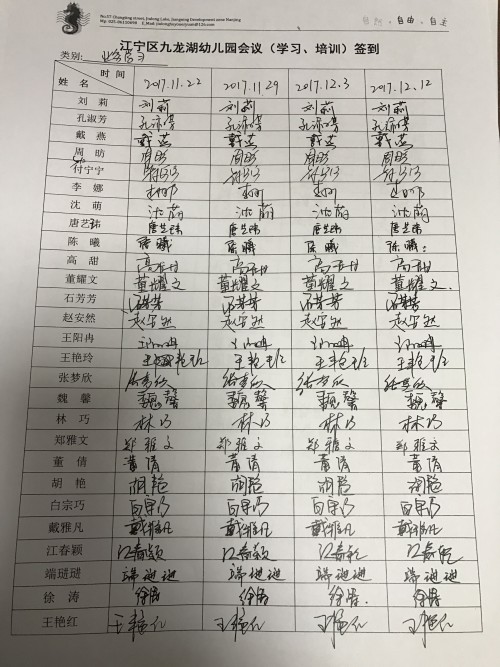 No:37 Changting street, Jiulong Lake, Jiangning Development zone Nanjing
自然，自由，自主
江宁区九龙湖幼儿园会议（学习、培训）签到
类别: 业务学习
姓名 时间 2017.11.22 2017.11.29 2017.12.3 2017.12.12
刘莉 刘莉 刘莉 刘莉 刘莉
孔淑芳 孔淑芳 孔淑芳 孔淑芳 孔淑芳
戴燕 戴燕 戴燕 戴燕 戴燕
周昉 周昉 周昉 周昉 周昉
付宁宁 付宁宁 付宁宁 付宁宁 付宁宁
李娜 李娜 李娜 李娜 李娜
沈萌 沈萌 沈萌 沈萌 沈萌
唐艺玮 唐艺玮 唐艺玮 唐艺玮 唐艺玮
陈曦 陈曦 陈曦 陈曦 陈曦
高甜 高甜 高甜 高甜 高甜
董耀文 董耀文 董耀文 董耀文 董耀文
石芳芳 石芳芳 石芳芳 石芳芳 石芳芳
赵安然 赵安然 赵安然 赵安然 赵安然
王阳冉 王阳冉 王阳冉 王阳冉 王阳冉
王艳玲 王艳玲 王艳玲 王艳玲 王艳玲
张梦欣 张梦欣 张梦欣 张梦欣 张梦欣
魏馨 魏馨 魏馨 魏馨 魏馨
林巧 林巧 林巧 林巧 林巧
郑雅文 郑雅文 郑雅文 郑雅文 郑雅文
董倩 董倩 董倩 董倩 董倩
胡艳 胡艳 胡艳 胡艳 胡艳
白宗巧 白宗巧 白宗巧 白宗巧 白宗巧
戴雅凡 戴雅凡 戴雅凡 戴雅凡 戴雅凡
江春颖 江春颖 江春颖 江春颖 江春颖
端琎琎 端琎琎 端琎琎 端琎琎 端琎琎
徐涛 徐涛 徐涛 徐涛 徐涛
王艳红 王艳红 王艳红 王艳红 王艳红